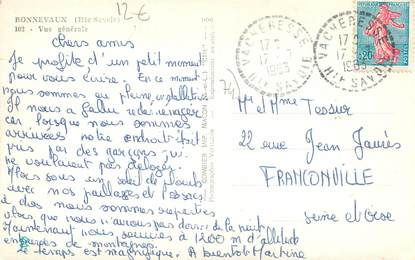 BONNEVAUX (Hte Savoie)
102 - Vue générale
12€
Chers amis
Je profite d'un petit moment
pour vous écrire. En ce moment
nous sommes en pleine installation
Il nous a fallu redéménager
car lorsque nous sommes
arrivées notre endroit était
pris par des garçons qui
ne voulaient pas déloger
Alors sous un soleil de plomb
avec nos paillages et sacs
à dos nous sommes reparties
alors que nous n'aurons pas dormi de la nuit
Maintenant nous sommes à 1200 m d'altitude
entourées de montagnes.
Le temps est magnifique. A bientôt Martine
COMBIER IMP. MACON
VACHERESSE
HTE SAVOIE
VACHERESSE
17
HTE SAVOIE
0,20
74)
Mr et Mme Tessier
22 rue Jean Jaurès
FRANCONVILLE
Seine et Oise